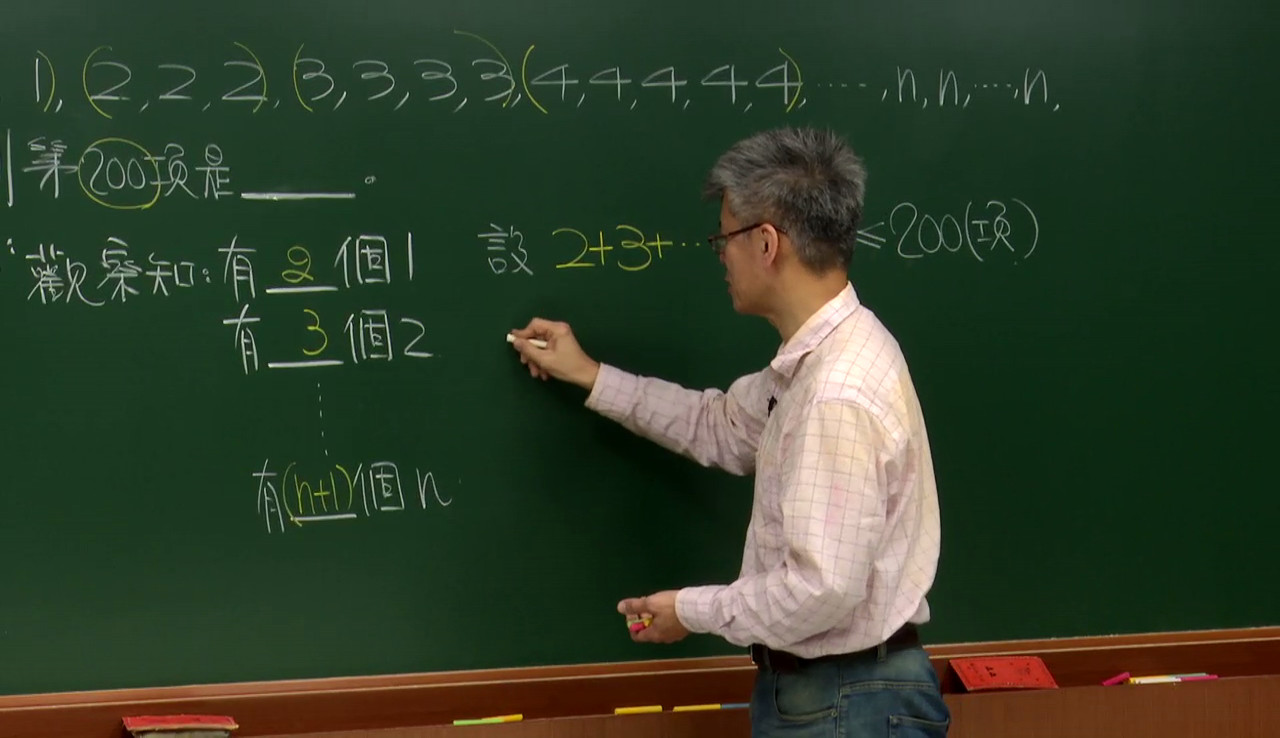 1), (2, 2, 2), (3, 3, 3, 3), (4, 4, 4, 4, 4), ……, n, n, …, n,
第200項是____。
觀察知:有 2 個1
設 2+3+… ≤200(項)
有 3 個2
有(n+1)個n